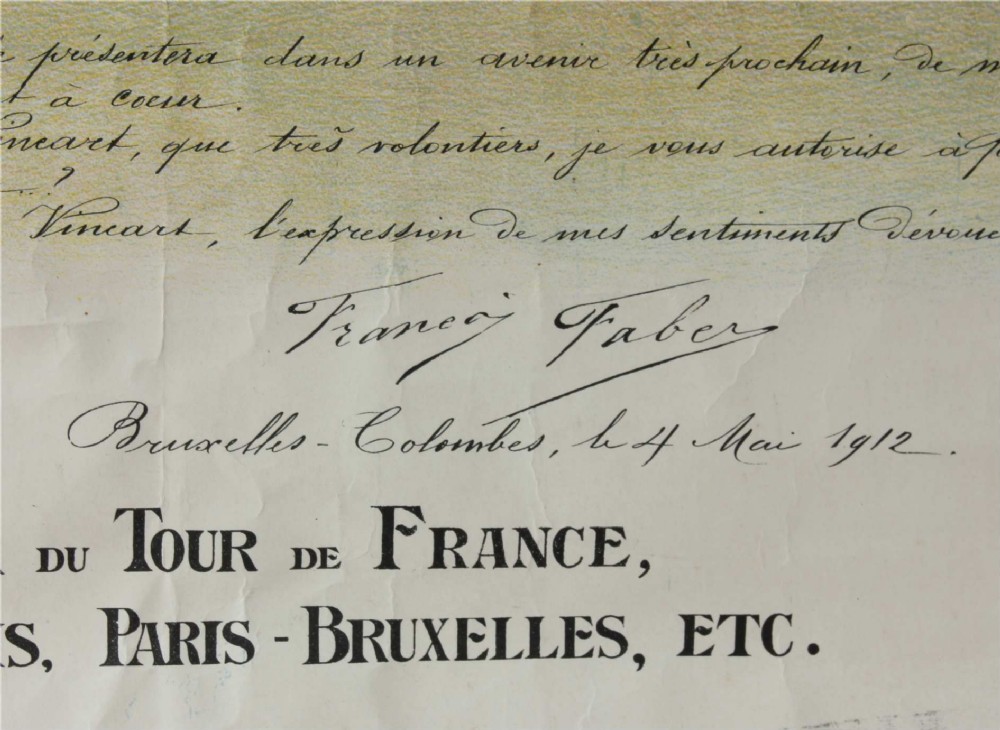 présentera dans un avenir très prochain, de m
t à coeur.
incart, que très volontiers, je vous autorise à p
?
Vincart, l'expression de mes sentiments dévoué
François Faber
Bruxelles-Colombes, le 4 Mai 1912.
DU TOUR DE FRANCE,
IS, PARIS-BRUXELLES, ETC.